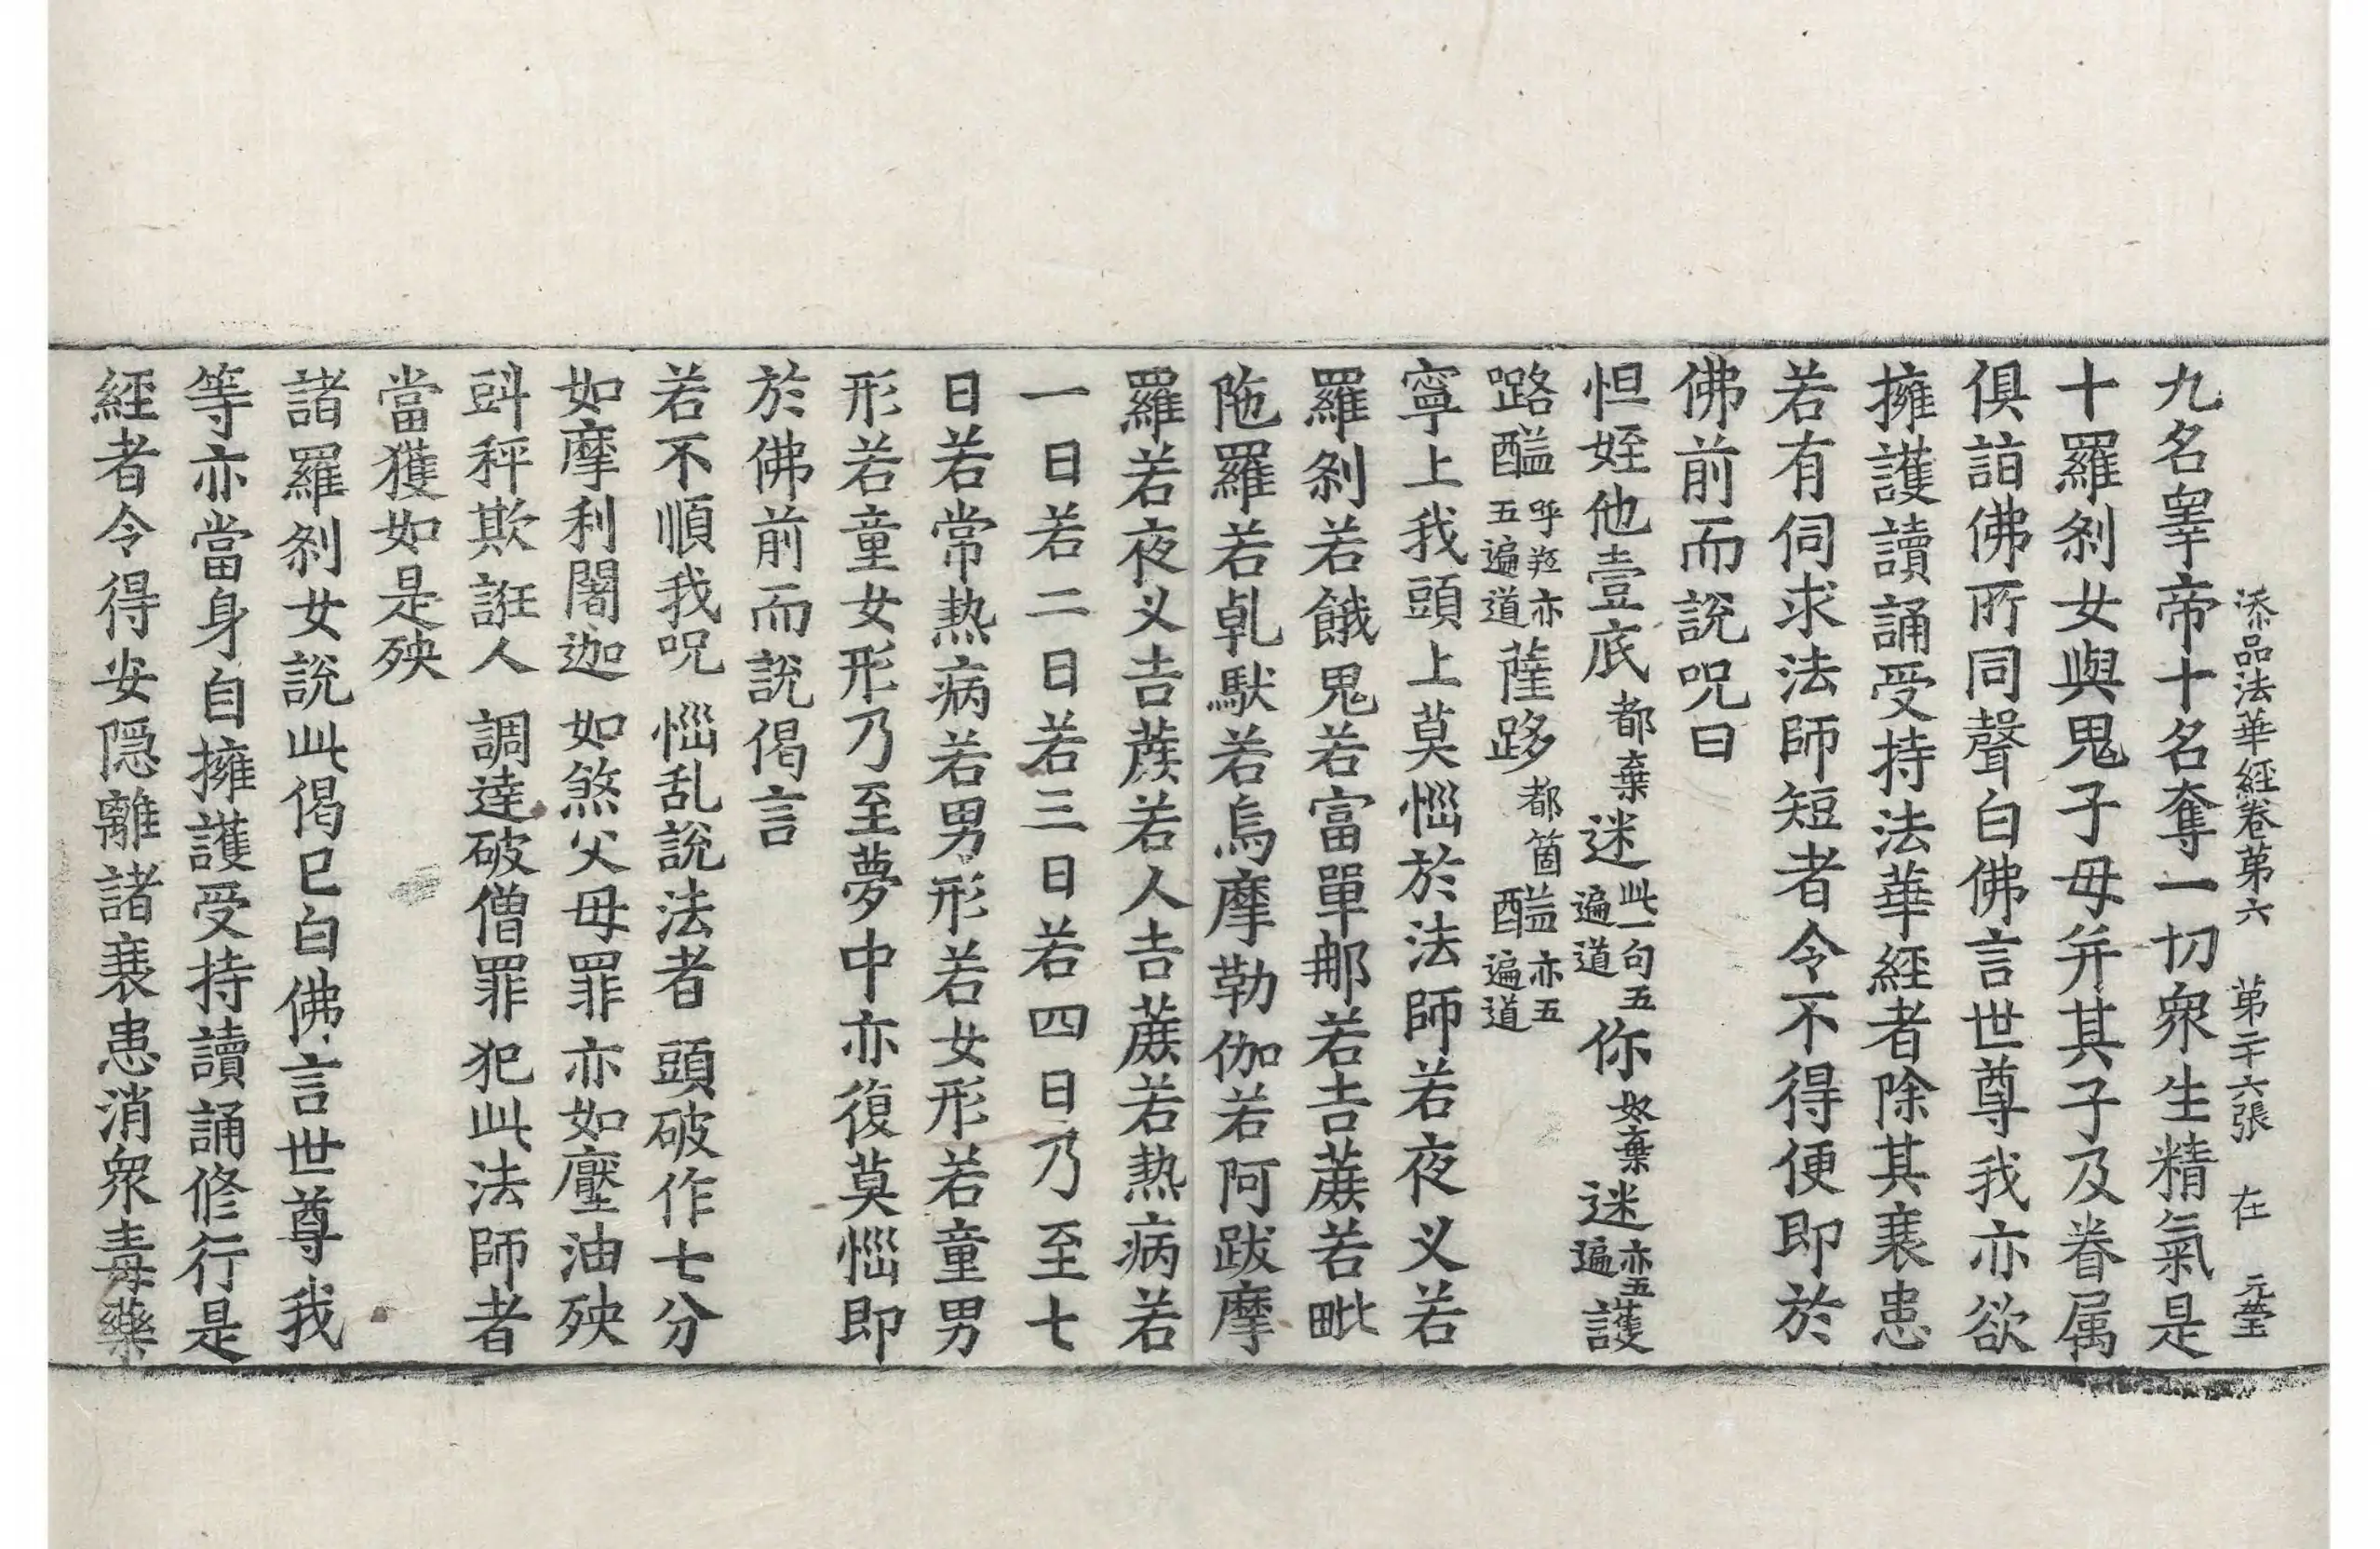 添品法華經卷第六 第二十六張 在 元瑩
九名睪帝十名奪一切衆生精氣是
十羅刹女與鬼子母并其子及眷属
俱詣佛所同聲白佛言世尊我亦欲
擁護讀誦受持法華經者除其衰患
若有伺求法師短者令不得便即於
佛前而說呪曰
怛姪他壹底都棄迷此一句五遍道你奴棄迷亦五遍護
𡀔醯呼羟亦五遍道薩跢都箇醯亦五遍道
寧上我頭上莫惱於法師若夜义若
羅刹若餓鬼若富單那若吉蔗若毗
陁羅若乹馱若烏摩勒伽若阿跋摩
羅若夜义吉蔗若人吉蔗若热病若
一日若二日若三日若四日乃至七
日若常热病若男形若女形若童男
形若童女形乃至夢中亦復莫惱即
於佛前而說偈言
若不順我呪 惱乱說法者 頭破作七分
如摩利闍迦 如煞父母罪 亦如壓油殃
㪷秤欺誑人 調達破僧罪 犯此法師者
當獲如是殃
諸羅刹女說此偈已白佛言世尊我
等亦當身自擁護受持讀誦修行是
經者令得安隠離諸衰患消衆毒藥